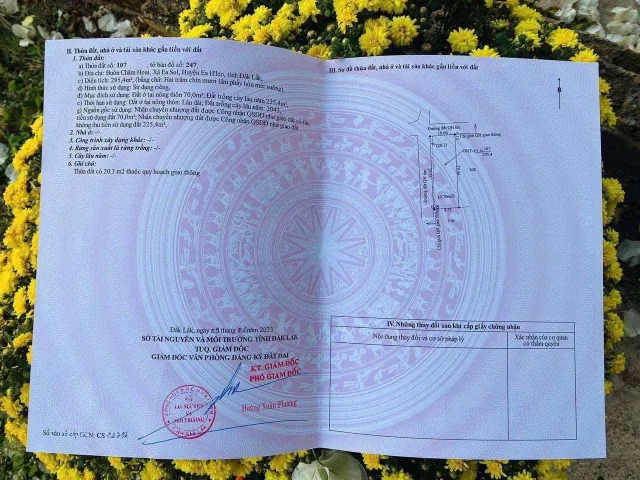 II. Thửa đất, nhà ở và tài sản khác gắn liền với đất
1. Thửa đất:
a) Thửa đất số: 107 , tờ bản đồ số: 247,
b) Địa chỉ: Buôn Chăm Hoai, Xã Ea Sol, Huyện Ea H'leo, tỉnh Đắk Lắk,
c) Diện tích: 295,4m², (bằng chữ: Hai trăm chín mươi lăm phẩy bốn mét vuông),
d) Hình thức sử dụng: Sử dụng riêng,
đ) Mục đích sử dụng: Đất ở tại nông thôn 70,0m²; Đất trồng cây lâu năm 225,4m²,
e) Thời hạn sử dụng: Đất ở tại nông thôn: Lâu dài; Đất trồng cây lâu năm: 2043,
g) Nguồn gốc sử dụng: Nhận chuyển nhượng đất được Công nhận QSDĐ như giao đất có thu
tiền sử dụng đất 70,0m²; Nhận chuyển nhượng đất được Công nhận QSDĐ như giao đất
không thu tiền sử dụng đất 225,4m².
2. Nhà ở: -/-
3. Công trình xây dựng khác: -/-
4. Rừng sản xuất là rừng trồng: -/-
5. Cây lâu năm: -/-
6. Ghi chú:
Thửa đất có 20.3 m2 thuộc quy hoạch giao thông
Đắk Lắk, ngày tháng năm 2023
SỞ TÀI NGUYÊN VÀ MÔI TRƯỜNG TỈNH ĐẮK LẮK
TUQ. GIÁM ĐỐC
GIÁM ĐỐC VĂN PHÒNG ĐĂNG KÝ ĐẤT ĐAI
KT. GIÁM ĐỐC
PHÓ GIÁM ĐỐC
SỞ
TÀI NGUYÊN
VÀ
MÔI TRƯỜNG
Hoàng Xuân Phương
Số vào sổ cấp GCN: CS
III. Sơ đồ thửa đất, nhà ở và tài sản khác gắn liền với đất
Đường đất QH 6m
(20.3)
Chỉ giới QH giao thông
107
295.4
106
Đường đất QH 6m
Chỉ giới QH giao thông
IV. Những thay đổi sau khi cấp giấy chứng nhận
Nội dung thay đổi và cơ sở pháp lý
Xác nhận của cơ quan
có thẩm quyền